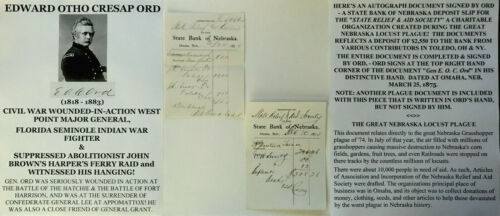 EDWARD OTHO CRESAP ORD
E.O.C. Ord
(1818 - 1883)
CIVIL WAR WOUNDED-IN-ACTION WEST
POINT MAJOR GENERAL,
FLORIDA SEMINOLE INDIAN WAR
FIGHTER
&
SUPPRESSED ABOLITIONIST JOHN
BROWN'S HARPER'S FERRY RAID and
WITNESSED HIS HANGING!
GEN. ORD WAS SERIOUSLY WOUNDED IN ACTION AT
THE BATTLE OF THE HATCHIE & THE BATTLE OF FORT
HARRISON, AND WAS AT THE SURRENDER OF
CONFEDERATE GENERAL LEE AT APPOMATTOX! HE
WAS ALSO A CLOSE FRIEND OF GENERAL GRANT.
State Bank of Nebraska.
State Bank of Nebraska.
HERE'S AN AUTOGRAPH DOCUMENT SIGNED BY ORD
- A STATE BANK OF NEBRASKA DEPOSIT SLIP FOR
THE "STATE RELIEF & AID SOCIETY" A CHARITABLE
ORGANIZATION CREATED DURING THE GREAT
NEBRASKA LOCUST PLAGUE! THE DOCUMENTS
REFLECTS A DEPOSIT OF $2,550 TO THE BANK FROM
VARIOUS CONTRIBUTORS IN TOLEDO, OH & NY.
THE ENTIRE DOCUMENT IS COMPLETED & SIGNED
BY ORD, - ORD SIGNS AT THE TOP RIGHT HAND
CORNER OF THE DOCUMENT "Gen E. O. C. Ord" IN HIS
DISTINCTIVE HAND. DATED AT OMAHA, NEB.
MARCH 25, 1875.
NOTE: ANOTHER PLAGUE DOCUMENT IS INCLUDED
WITH THIS PIECE THAT IS WRITTEN IN ORD'S HAND,
BUT NOT SIGNED BY HIM.
<<>>
THE GREAT NEBRASKA LOCUST PLAGUE
This document relates directly to the great Nebraska Grasshopper
plague of '74. In July of that year, the air filled with millions of
grasshoppers causing massive destruction to Nebraska's corn
fields, gardens, fruit trees, and even Railroads were stopped on
there tracks by the countless millions of locusts.
There were about 10,000 people in need of aid. As such, Articles
of Association and incorporation of the Nebraska Relief and Aid
Society were drafted. The organizations principal place of
business was in Omaha, and its object was to collect donations of
money, clothing, seeds, and other articles to help those devastated
by the worst plague in Nebraska history.